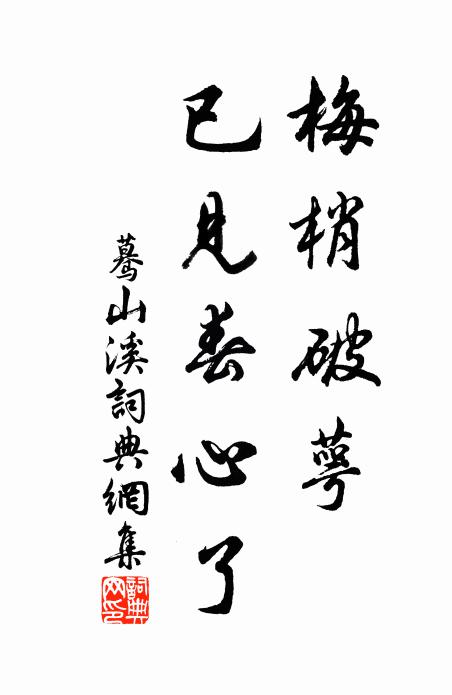 梅梢破萼
已見春心了
驀山溪詞典網集
詞典網印